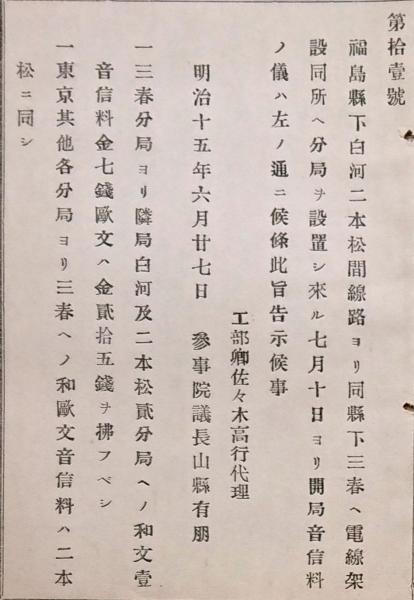 第拾壹號
福島縣下白河二本松間線路ヨリ同縣下三春ヘ電線架
設同所ヘ分局ヲ設置シ來ル七月十日ヨリ開局音信料
ノ儀ハ左ノ通ニ候條此旨告示候事
工部卿佐々木高行代理
明治十五年六月廿七日 參事院議長山縣有朋
一三春分局ヨリ隣局白河及二本松貳分局ヘノ和文壹
音信料金七錢歐文ハ金貳拾五錢ヲ拂フベシ
一東京其他各分局ヨリ三春ヘノ和歐文音信料ハ二本
松ニ同シ